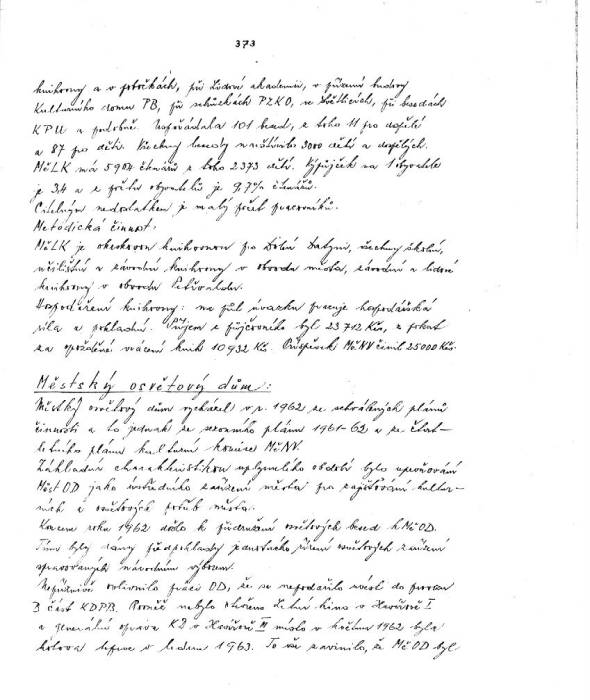 373
knihovny a v pobočkách, při Lidové akademii, v řízení budovy
Kulturního domu PB, při schůzkách PZKO, ve Světlicích, při besedách
KPU a podobně. Uspořádala 101 besed, z toho 11 pro dospělé
a 87 pro děti. Všechny besedy navštívilo 3000 dětí a dospělých.
MěLK má 5904 čtenářů z toho 2373 dětí. Výpůjček na 1 obyvatele
je 3,4 a z počtu obyvatelů je 9,7% čtenářů.
Citelným nedostatkem je malý počet pracovníků.
Metodická činnost:
MěLK je okrskovou knihovnou pro Dolní Datyni, všechny školní,
učilištní a závodní knihovny v obvodu města, závodní a lidové
knihovny v obvodu Petřvalda.
Hospodaření knihovny: na půl úvazku pracuje hospodářská
síla a pokladní. Příjem z půjčovného byl 23712 Kčs, z pokut
za opožděné vrácení knih 10932 Kčs. Příspěvek MěNV činil 25000 Kčs.
Městský osvětový dům:
Městský osvětový dům vycházel v r. 1962 ze schválených plánů
činnosti a to jednak ze sezonního plánu 1961-62 a ze čtvrt-
letního plánu kulturní komise MěNV.
Základní charakteristikou uplynulého období bylo upevňování
MěstOD jako ústředního zařízení města pro zajišťování kultur-
ních a osvětových potřeb města.
Koncem roku 1962 došlo k přidružení osvětových besed k MěOD.
Tím byly dány předpoklady jednotného řízení osvětových zařízení
spravovaných národním výborem.
Nepříznivě ovlivnilo práci OD, že se nepodařilo uvést do provozu
B část KDPB. Rovněž nebylo otevřeno Letní kino v Havířově I
a generální oprava KD v Havířově III místo v květnu 1962 byla
hotova teprve v lednu 1963. To vše zavinilo, že MěOD byl